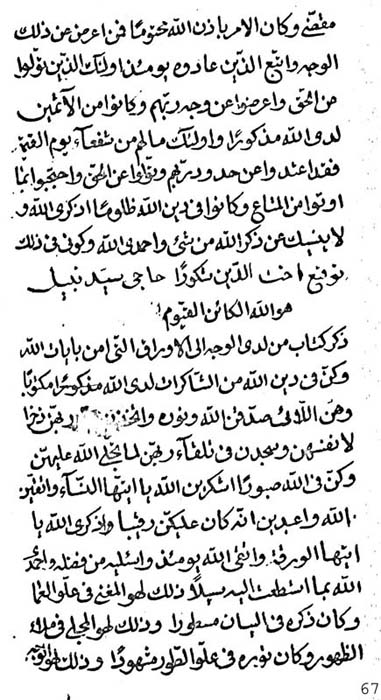 مقضيّ وكان الامر باذن الله محتومًا فمن اعرض عن ذلك
الوجه واتبع الذين عادوه يومئذ اولئك الذين تولّوا
عن الحق واعرضوا عن وجه ربهم وكانوا من الآثمين
لدى الله مذكورًا واولئك ما لهم من شفعآء يوم القيمة
فقد اعتدوا عن حدود ربهم وتولّوا عن الحق واحتجبوا بما
اوتوا من المتاع وكانوا في دين الله ظلومًا اذكرى الله و
لا ينسيك عن ذكر الله من شئ واحمدى الله وكونى في ذلك
توقيع اخت الذين شكورًا حاجى سيد نبيل
هو الله الكائن القيوم
ذكر كتاب من لدى الوجه الى الاوراق التى امن بايات الله
وكنّ في دين الله من الشاكرات لدى الله مذكورًا مكتوبًا
وهنّ اللائى صدّقن الله ونوره ربهنّ ذخرًا
لانفسهنّ ويسجدن في تلقآء ربهنّ لما تجلى الله عليهنّ
وكنّ في الله صبورًا اشكرين الله يا ايتها النسآء واتقين
الله واعبدين انه كان عليكنّ رقيبا واذكرى الله يا
ايتها الورقة واتقى الله يومئذ واسئليه من فضله واحمدى
الله بما استطعت اليه سبيلًا ذلك لهو المغنى في علو العما
وكان ذكره في البيان مسطورا وذلك لهو المجلى في ملاء
الظهور وكان نوره في علو الطور مشهودًا وذلك لهو
67